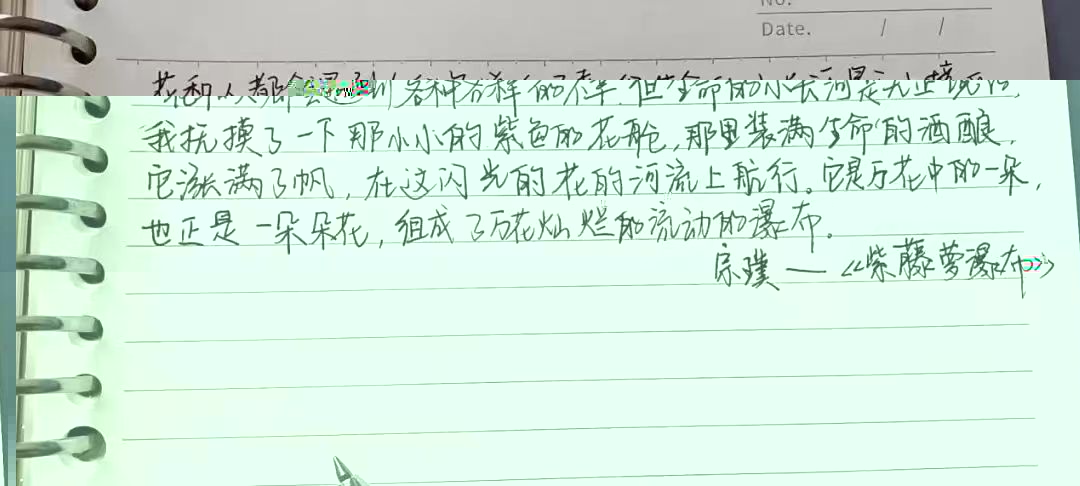 No.
Date. / /
花和人都会遇到各种各样的不幸,但生命的小长河是无止境的.
我抚摸了一下那小小的紫色的花舱,那里装满生命的酒酿,
它涨满了帆,在这闪光的花的河流上航行。它是万花中的一朵,
也正是一朵朵花,组成了万花灿烂的流动的瀑布。
宗璞—《紫藤萝瀑布》